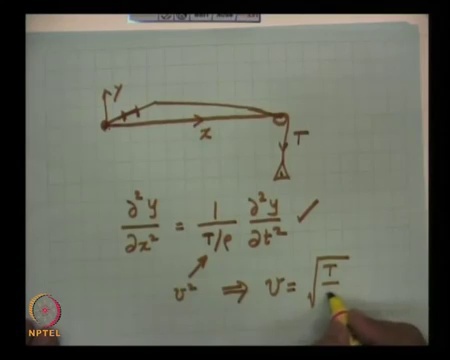 y
x
T
∂²y/∂x² = 1/(T/ρ) ∂²y/∂t² ✓
v² ⇒ v = √T
NPTEL